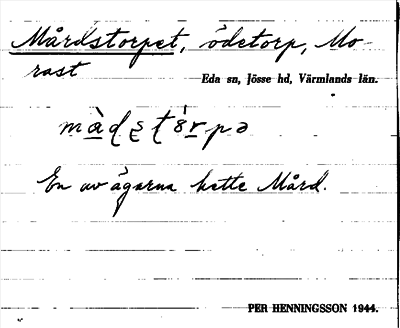 Mårdstorpet, ödetorp, Mo-
rast
Eda sn, Jösse hd, Värmlands län.
En av ägarna hette Mård.
PER HENNINGSSON 1944.